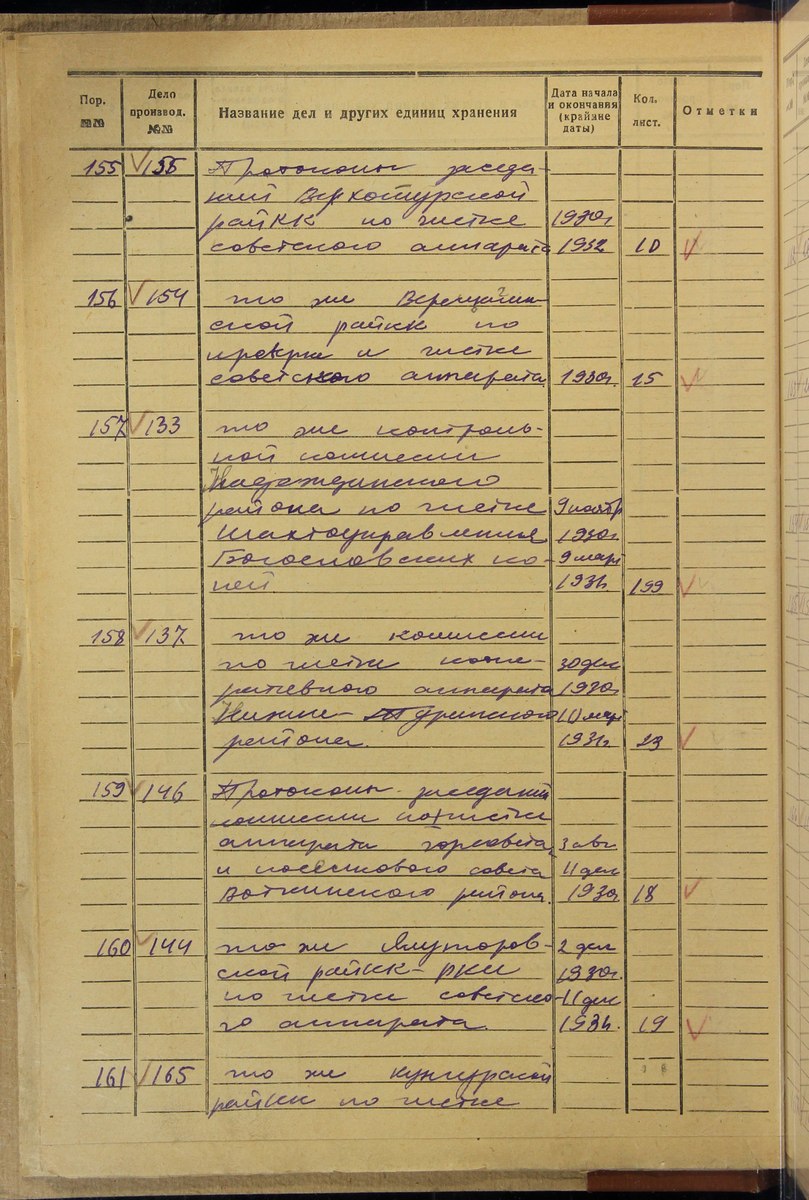 Пор. №№ Дело производ. №№ Название дел и других единиц хранения Дата начала и окончания (крайние даты) Кол. лист. Отметки
155 155 Протоколы заседа-
ний Верхотурской
райКК по чистке 1930г.
советского аппарата 1932 10
156 154 то же Верещагин-
ской райКК по
проверке и чистке
советского аппарата 1930г. 15
157 133 то же контроль-
ной комиссии
Надеждинского
района по чистке 9 ноябр
Шахтоуправления 1930г.
Богословских ко- 9 март
пей 1931г. 199
158 137 то же комиссии
по чистке коопе- 30 дек
ративного аппарата 1930г.
Нижне-Туринского 10 март
района. 1931г. 23
159 146 Протоколы заседаний
комиссии по чистке
аппарата горсовета 3 авг
и поселкового совета 11 дек
Воткинского района. 1930г. 18
160 144 то же Ялуторов- 2 дек
ской райКК-РКИ 1930г.
по чистке советско- 11 дек
го аппарата. 1931г. 19
161 165 то же Кунгурской
райКК по чистке